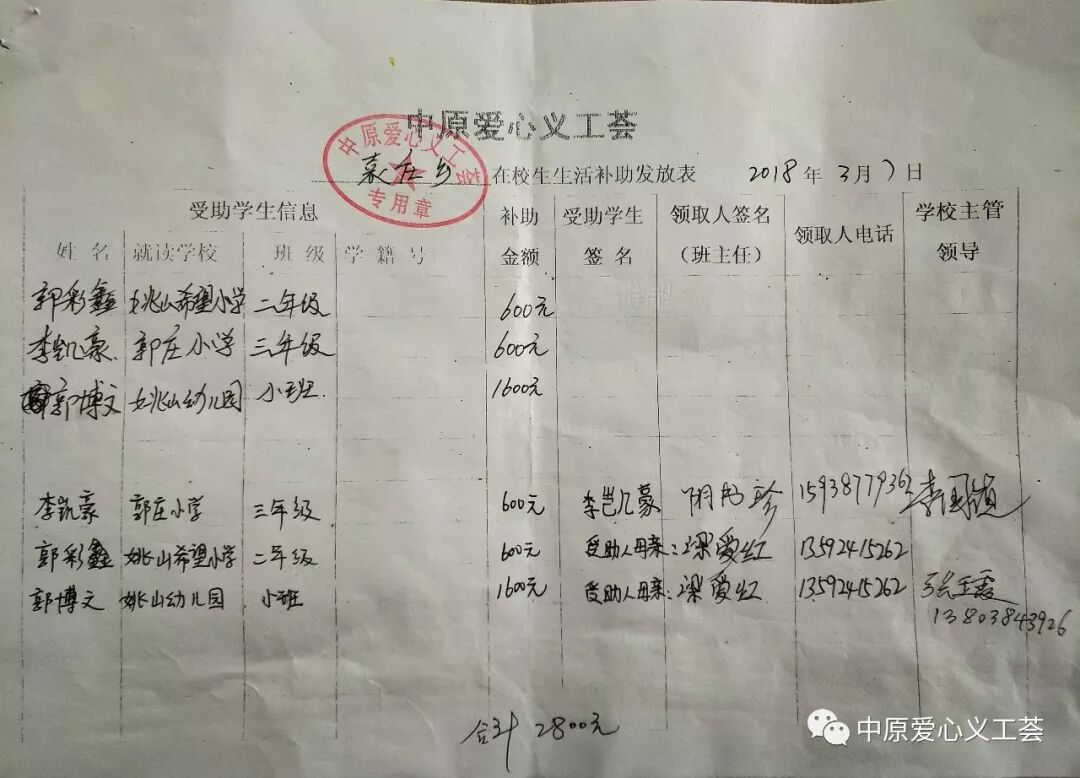 中原爱心义工荟
中原爱心义工荟
专用章
袁庄乡 在校生生活补助发放表 2018年3月7日
受助学生信息 补助金额 受助学生签名 领取人签名(班主任) 领取人电话 学校主管领导
姓名 就读学校 班级 学籍号
郭彩鑫 姚山希望小学 二年级 600元
李凯豪 郭庄小学 三年级 600元
郭博文 姚山幼儿园 小班 1600元
李凯豪 郭庄小学 三年级 600元 李凯豪 1593877936
郭彩鑫 姚山希望小学 二年级 600元 受助人母亲:梁爱红 13592415262
郭博文 姚山幼儿园 小班 1600元 受助人母亲:梁爱红 13592415262
13803843926
合计 2800元
中原爱心义工荟